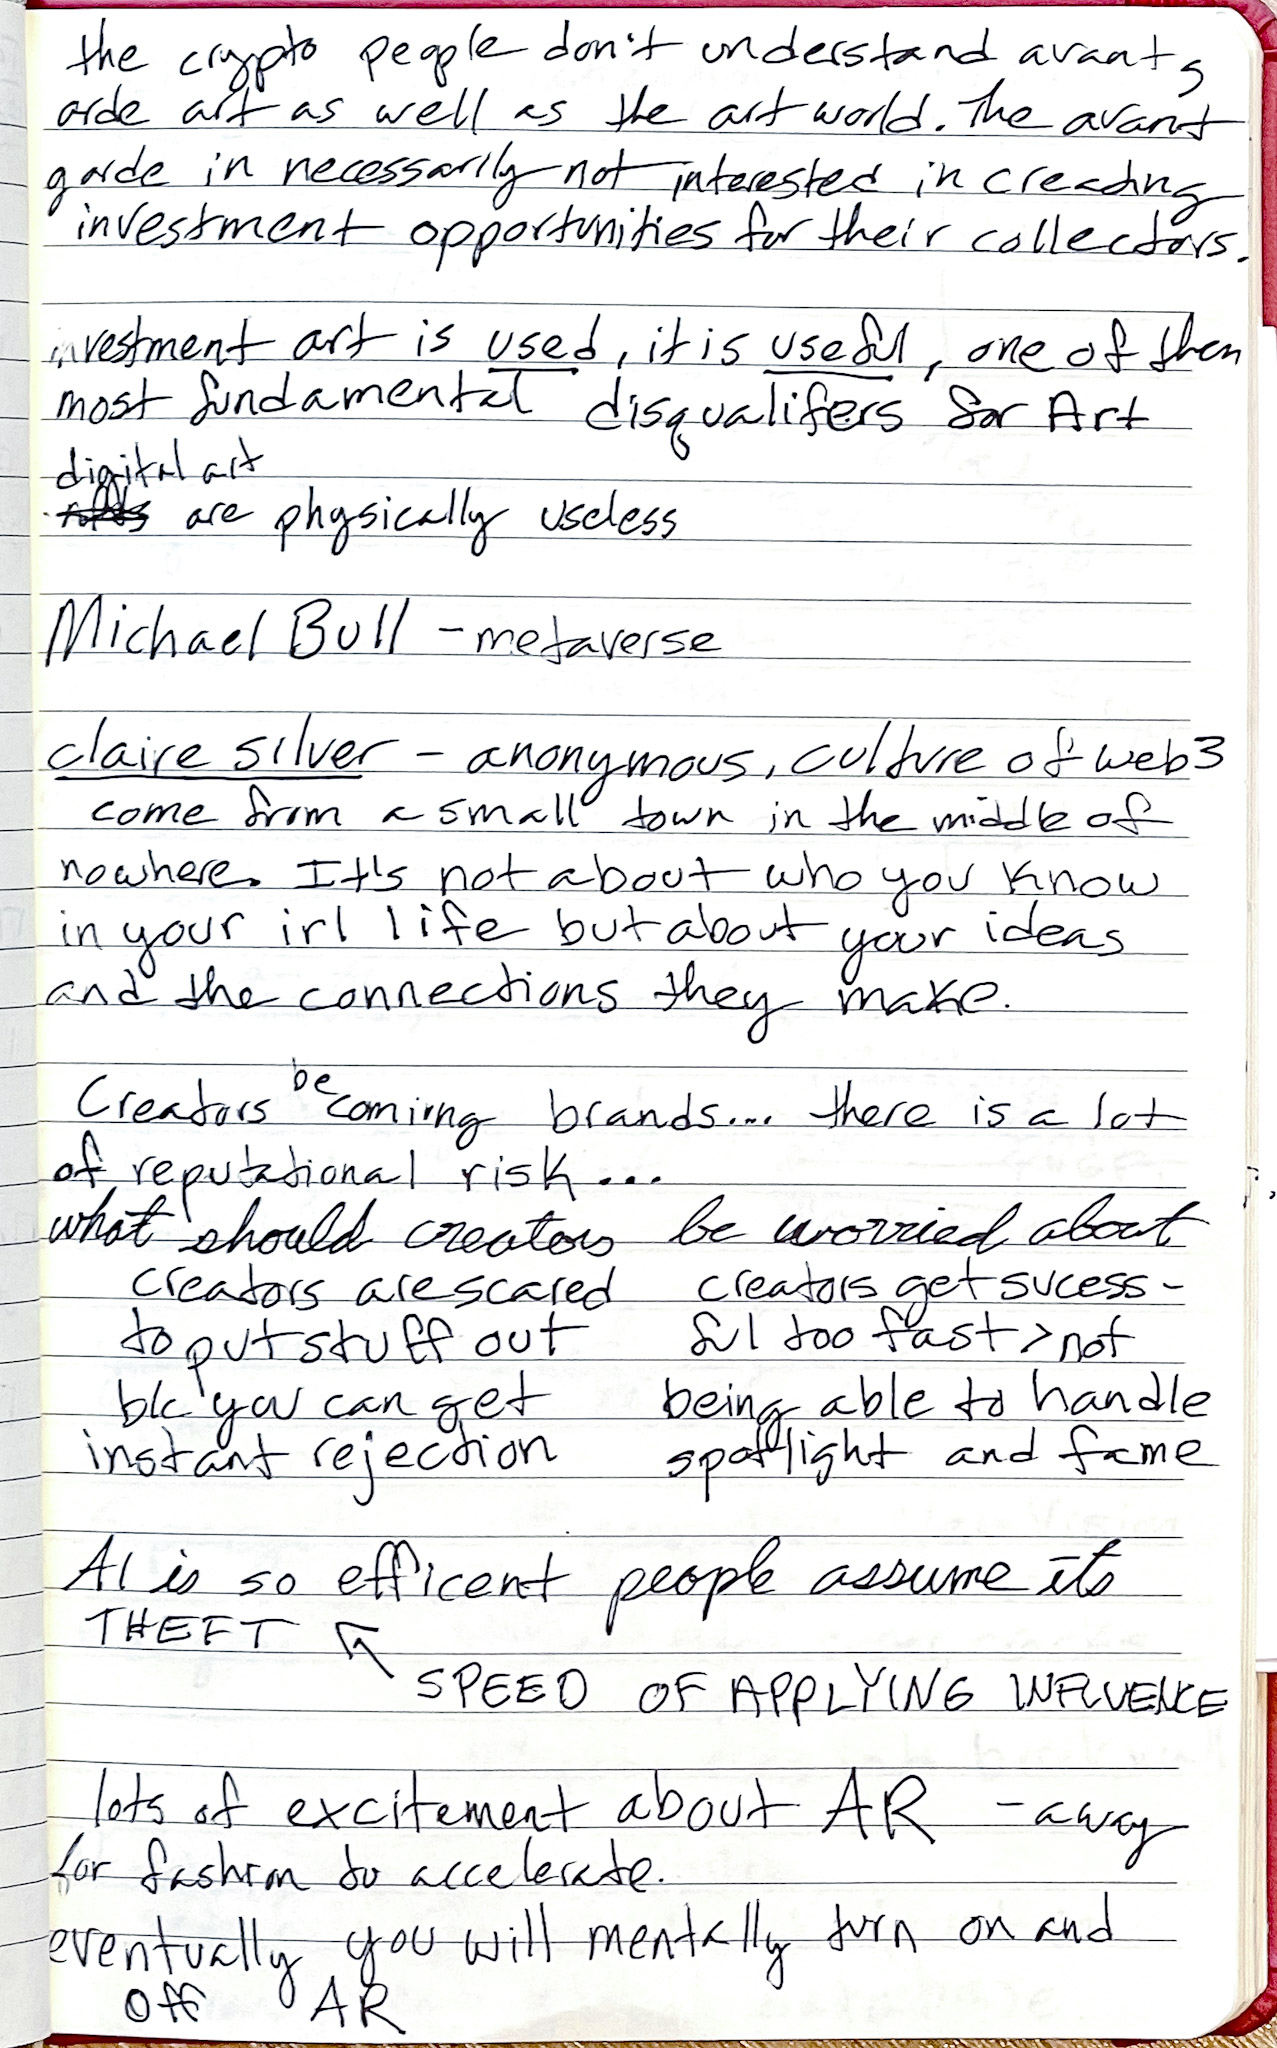 the crypto people don't understand avant g
arde art as well as the art world. The avant
garde in necessarily not interested in creating
investment opportunities for their collectors.
investment art is used, it is useful, one of then
most fundamental disqualifers for Art
digital art
are physically useless
Michael Bull - metaverse
claire silver - anonymous, culture of web3
come from a small town in the middle of
nowhere. It's not about who you know
in your irl life but about your ideas
and the connections they make.
be
Creators coming brands... there is a lot
of reputational risk...
what should creators be worried about
creators are scared
to put stuff out
b/c you can get
instant rejection
creators get sucess-
ful too fast > not
being able to handle
spotlight and fame
AI is so efficent people assume its
THEFT
SPEED OF APPLYING INFLUENCE
lots of excitement about AR - a way
for fashion to accelerate.
eventually you will mentally turn on and
off AR